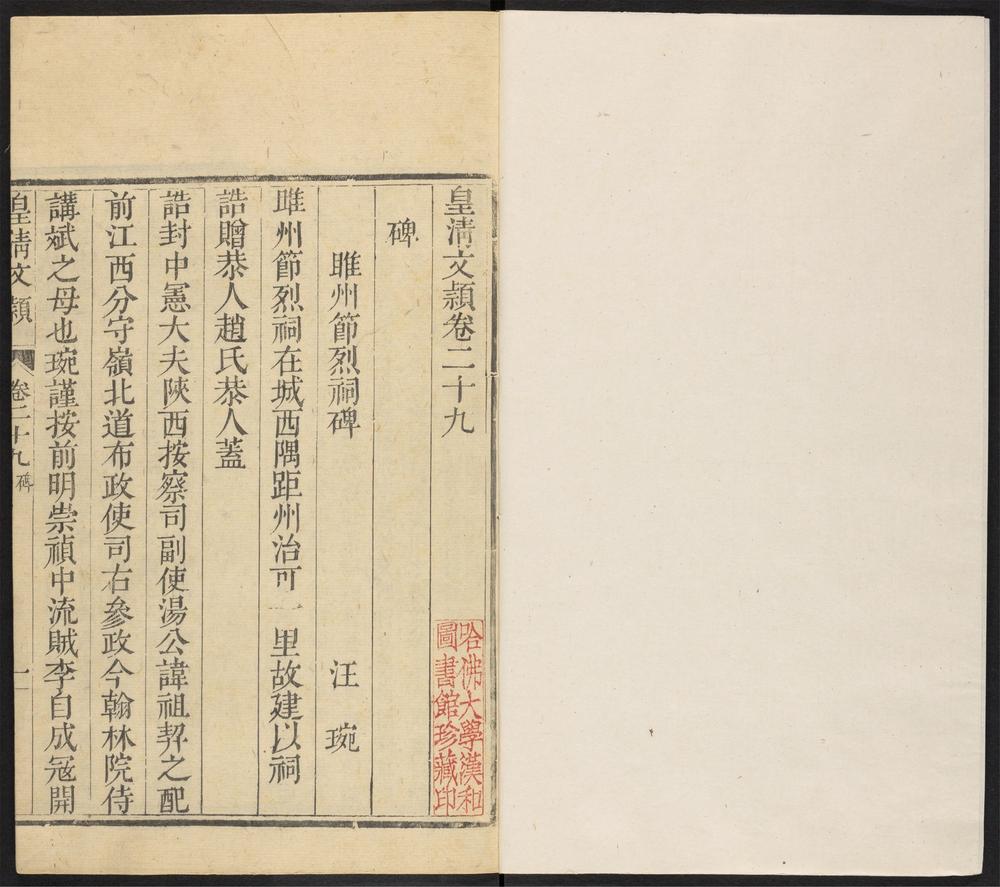 皇清文穎卷二十九
碑
睢州節烈祠碑　汪琬
睢州節烈祠在城西隅距州治可一里故建以祠
誥贈恭人趙氏恭人蓋
誥封中憲大夫陝西按察司副使湯公諱祖契之配
前江西分守嶺北道布政使司右參政今翰林院侍
講斌之母也琬謹按前明崇禎中流賊李自成寇開
皇清文穎　卷二十九　碑　一
哈佛大學漢和
圖書館珍藏印